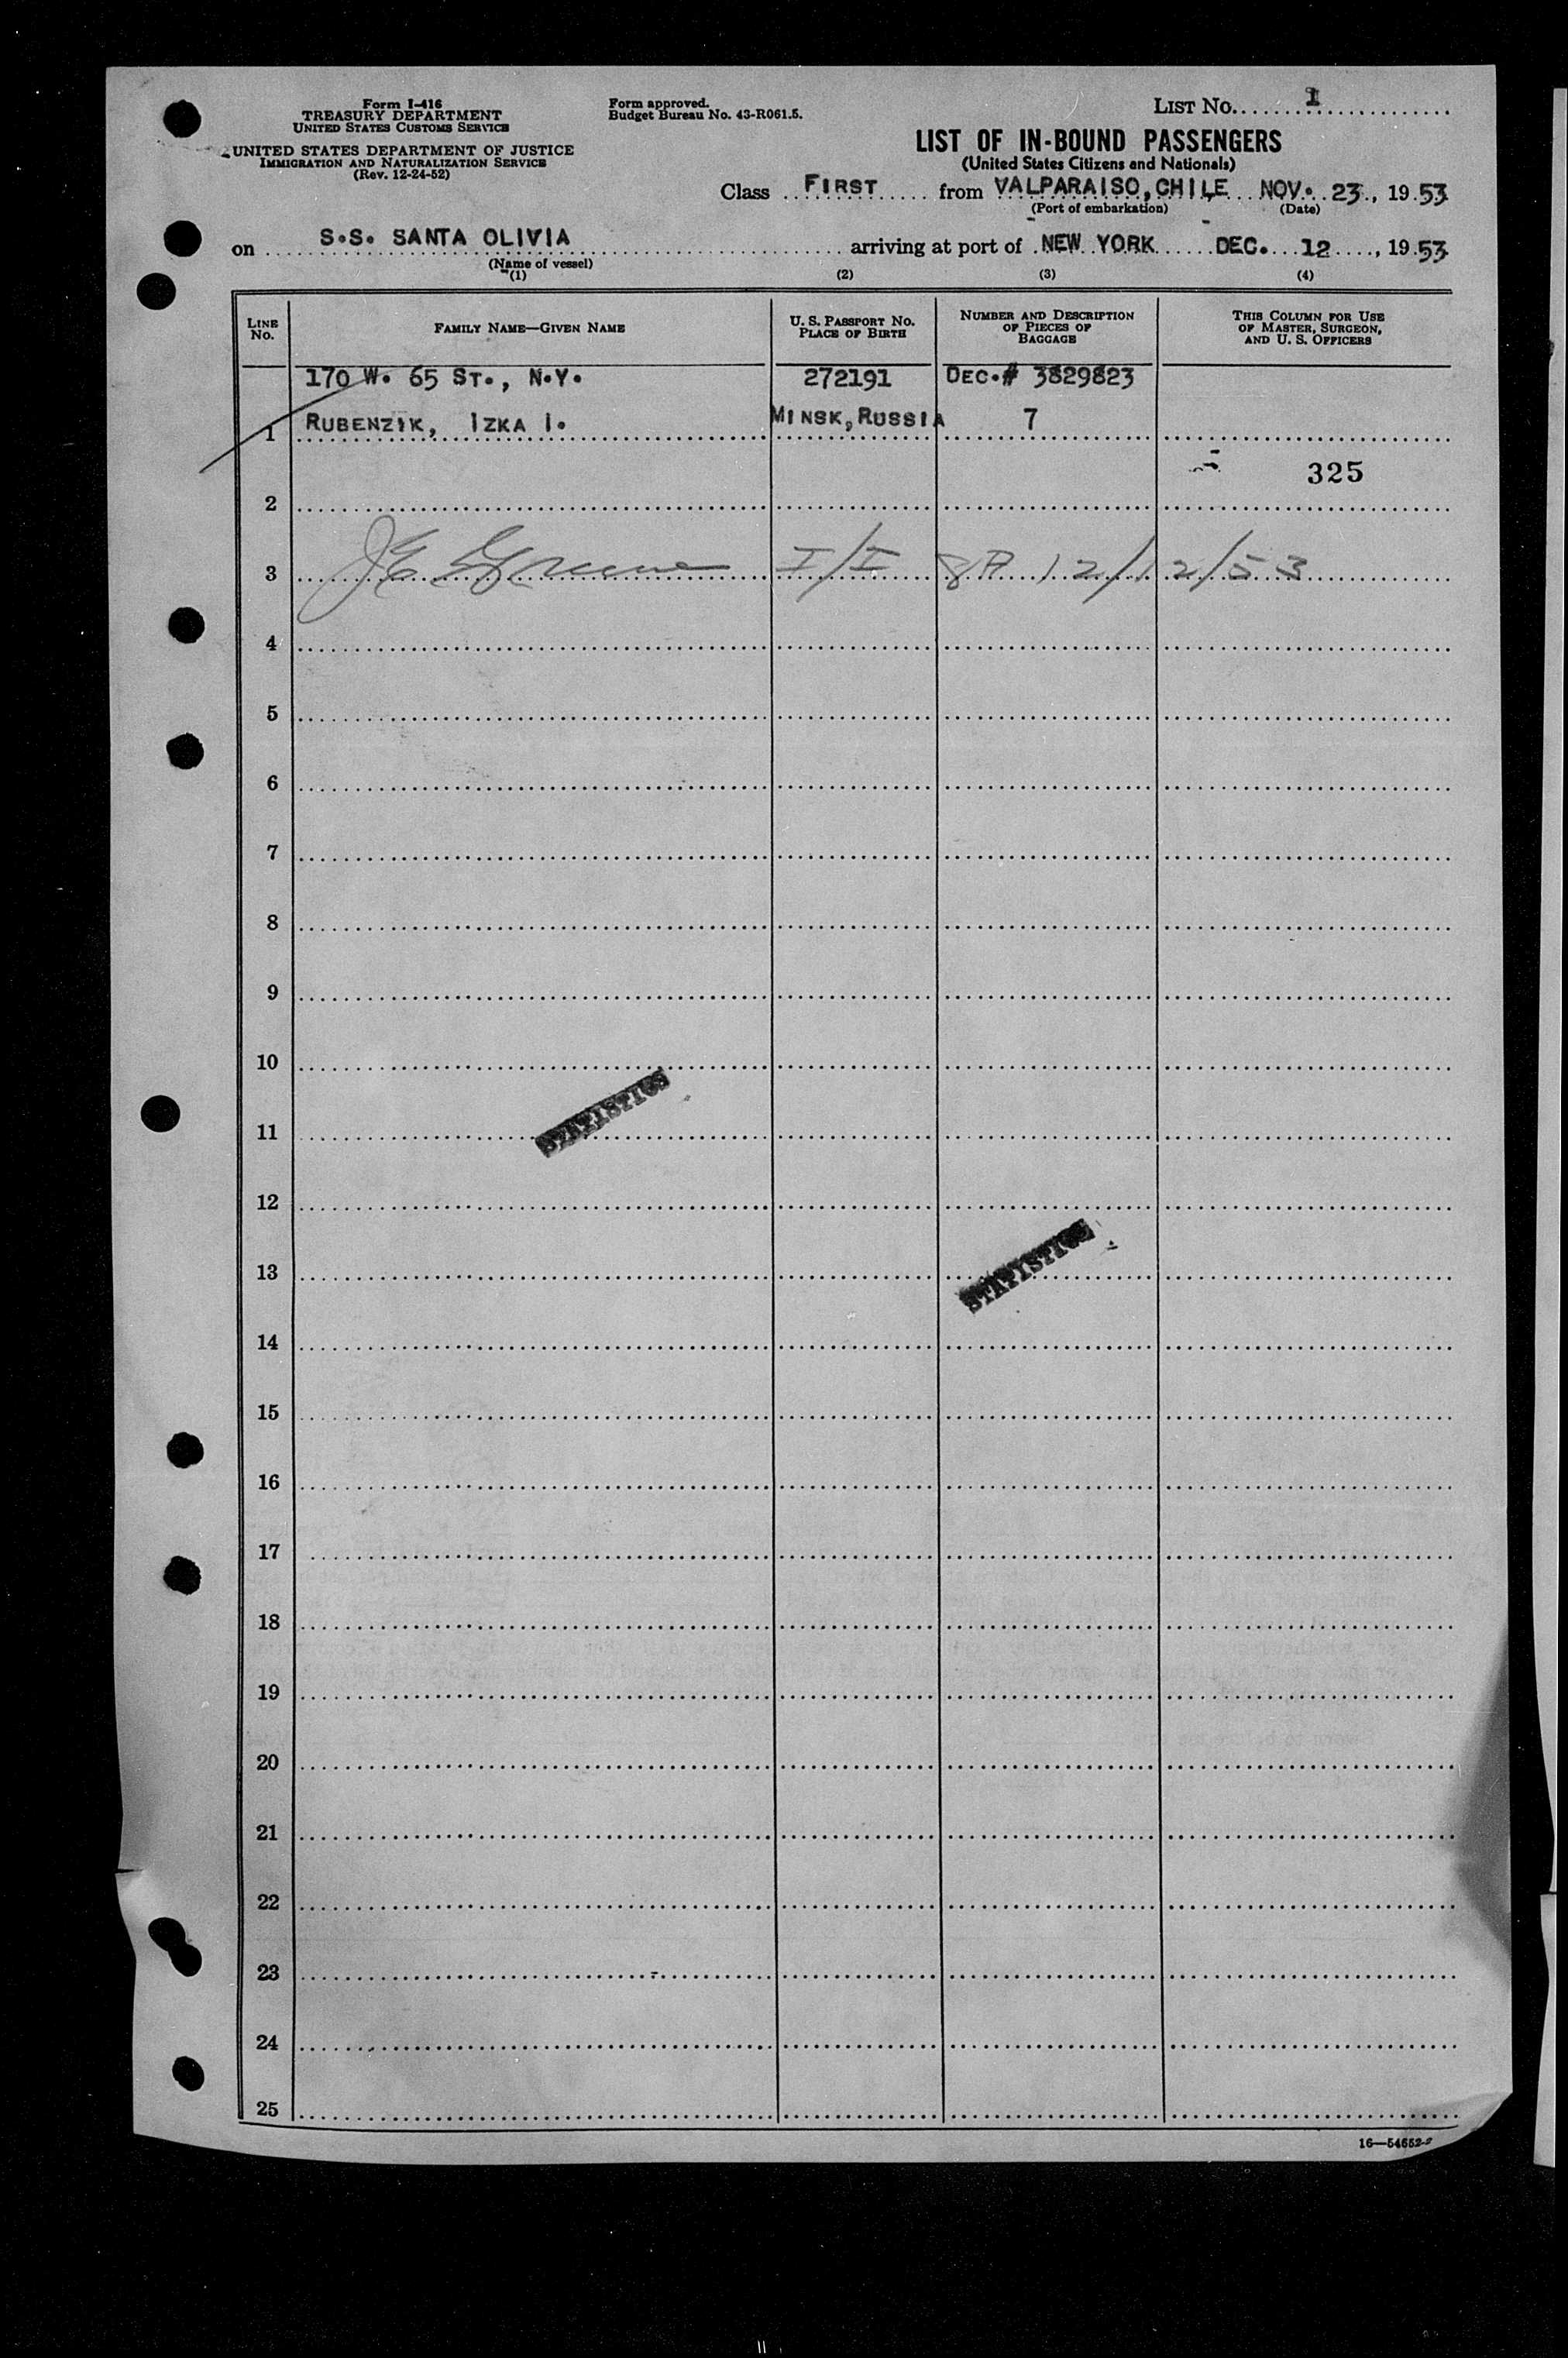 Form I-416
TREASURY DEPARTMENT
UNITED STATES CUSTOMS SERVICE
UNITED STATES DEPARTMENT OF JUSTICE
IMMIGRATION AND NATURALIZATION SERVICE
(Rev. 12-24-52)
Form approved.
Budget Bureau No. 43-R061.5.
LIST NO. 1
LIST OF IN-BOUND PASSENGERS
(United States Citizens and Nationals)
Class FIRST from VALPARAISO, CHILE NOV. 23, 1953
(Port of embarkation) (Date)
on S.S. SANTA OLIVIA arriving at port of NEW YORK DEC. 12, 1953
(Name of vessel)
(1) (2) (3) (4)
LINE NO. FAMILY NAME—GIVEN NAME U. S. PASSPORT NO. PLACE OF BIRTH NUMBER AND DESCRIPTION OF PIECES OF BAGGAGE THIS COLUMN FOR USE OF MASTER, SURGEON, AND U. S. OFFICERS
170 W. 65 ST., N.Y. 272191 DEC.# 3829823
1 RUBENZIK, IZKA I. MINSK, RUSSIA 7
325
2
3 I/I 12/12/53
4
5
6
7
8
9
10
STATISTICS
11
12
STATISTICS
13
14
15
16
17
18
19
20
21
22
23
24
25